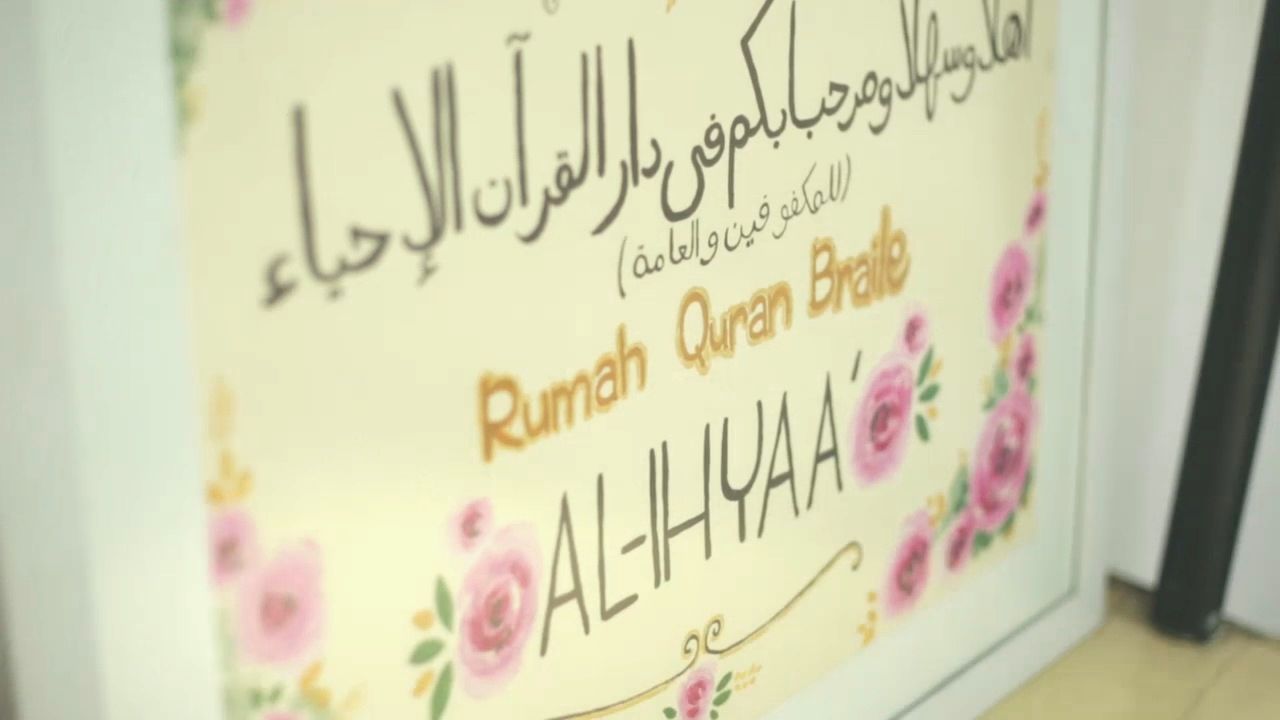 اهلا وسهلا ومرحبا بكم فى دار القرآن الإحياء
(للمكفوفين والعامة)
Rumah Quran Braile
AL-IHYAA'